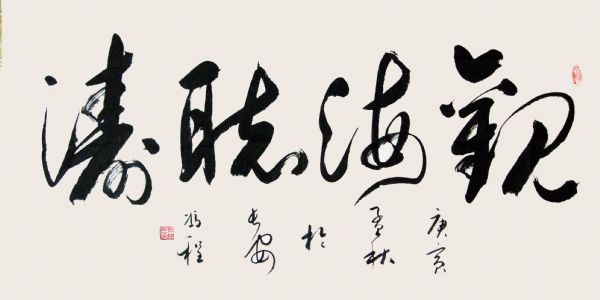 觀海聽濤
庚寅
孟秋
於
長安
馮程